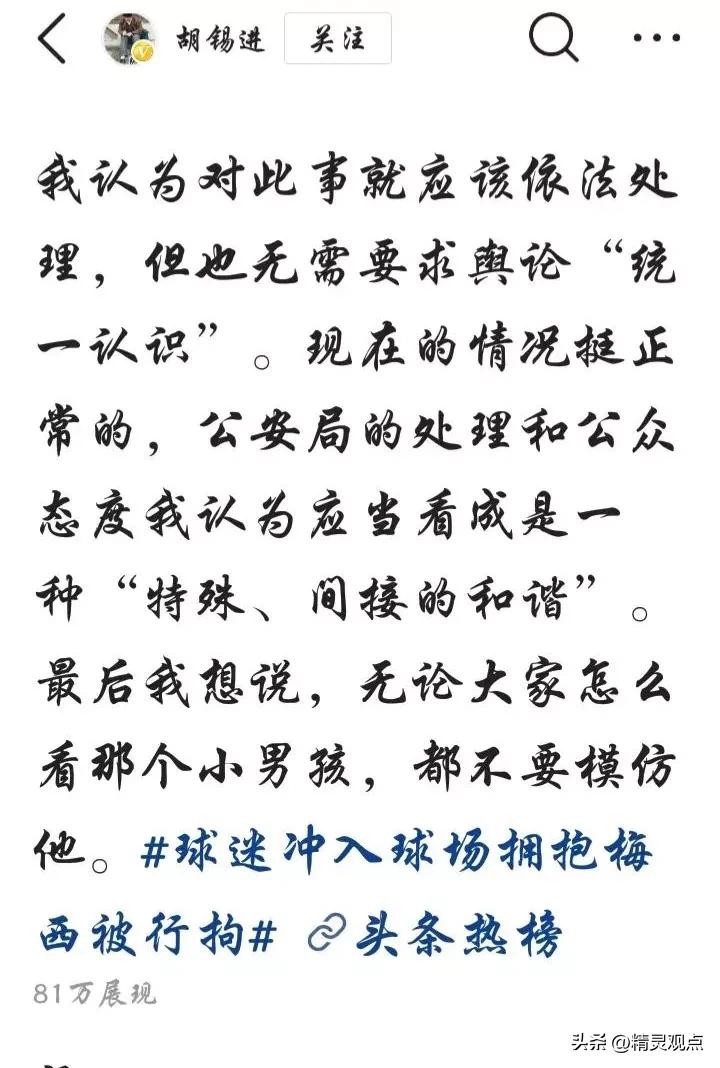 胡锡进 关注
我认为对此事就应该依法处
理，但也无需要求舆论“统
一认识”。现在的情况挺正
常的，公安局的处理和公众
态度我认为应当看成是一
种“特殊、间接的和谐”。
最后我想说，无论大家怎么
看那个小男孩，都不要模仿
他。#球迷冲入球场拥抱梅
西被行拘# 头条热榜
81万展现
头条 @精灵观点